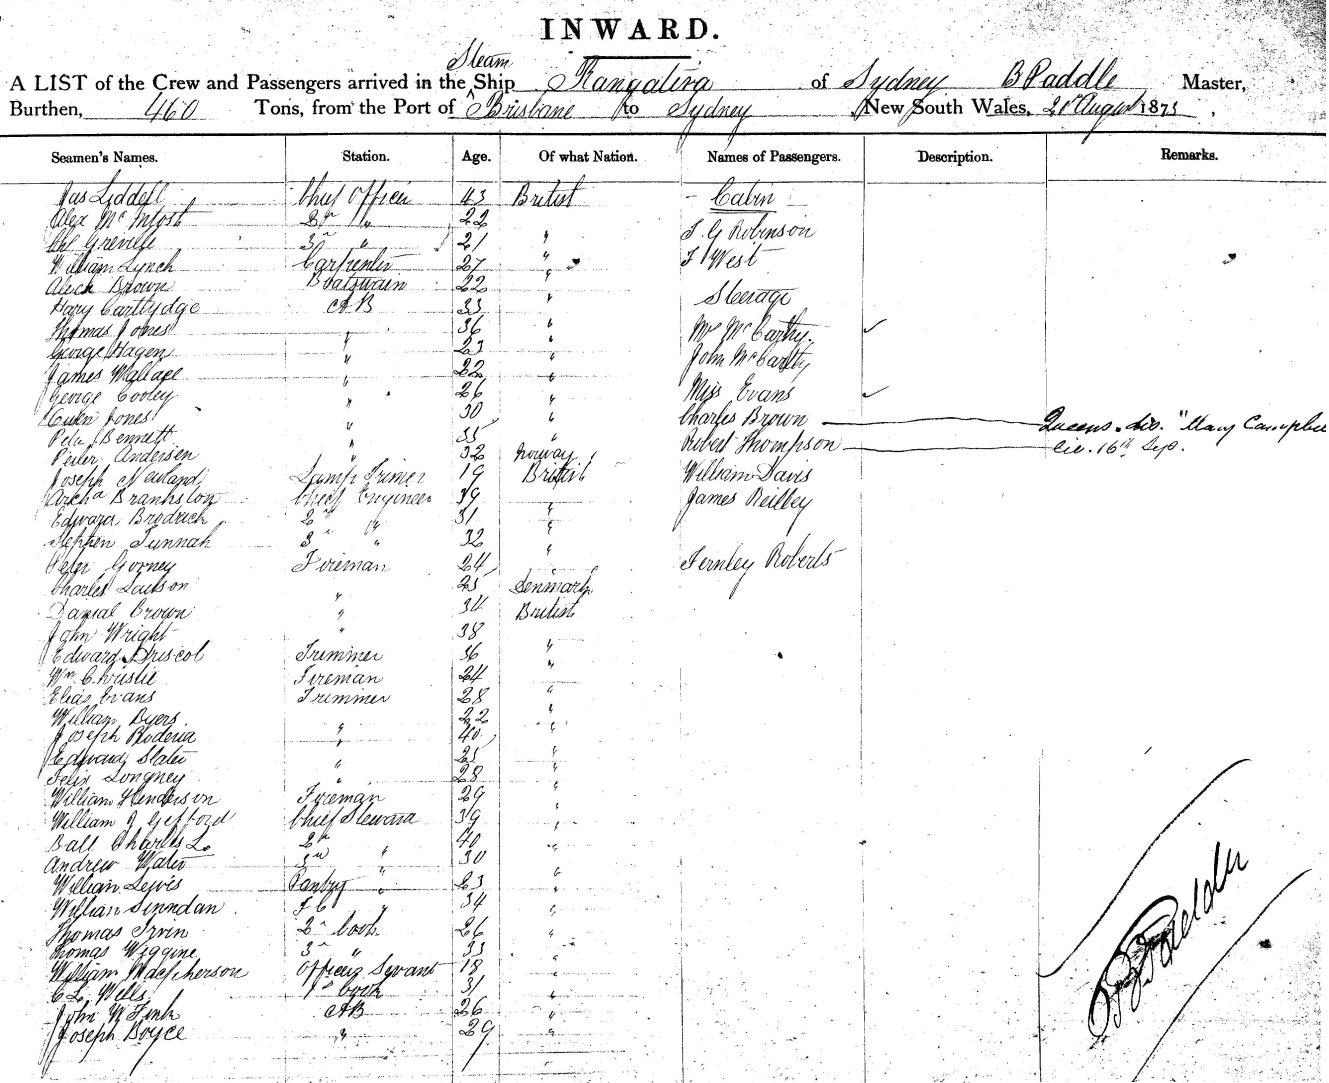 INWARD.
Steam
A LIST of the Crew and Passengers arrived in the Ship Rangatira of Sydney B Paddle Master,
Burthen, 460 Tons, from the Port of Brisbane to Sydney New South Wales, 21st August 1873
Seamen's Names. Station. Age. Of what Nation. Names of Passengers. Description. Remarks.
Jas Liddell Chief Officer 43 British Cabin
Alex McIntosh 2n " 22
Greville 3n " 21 " F G Robinson
William Lynch Carpenter 27 " F West
Aleck Brown Boatswain 22 "
Hary Carttydge AB 33 " Sterage
Thomas Jones 36 " Mr McCarthy.
George Hagen " 23 " John McCartty
James Wallace " 22 "
George Cooley " 26 " Miss Evans
Jones " 30 " Charles Brown "Mary Campbell
Peter Bennett " 35 " Robert Thompson 16th Syd.
Peter Andersen " 32 Norway
Joseph Lamp Trimer 19 British William Davis
Archa Brankston Chief Engineer 39 James Reilley
Edward Brodrick 2n " 31 "
Stephen Tunnah 3n " 32 "
Peter Gorney Fireman 24 " Fernley Roberts
Charles 25 Denmark
Danial Brown " 34 British
John Wright " 38
Edward Driscol Trimmer 36 "
Wm Christie Fireman 24 "
Elias Evans Trimmer 28 "
William Byers 22 "
Joseph Roderia " 40 "
Edward Slater " 25 "
Felix Longney " 28 "
William Henderson Fireman 29 "
William J Gifford Chief Steward 39 "
Ball Charles L 2n 40 "
Andrew Water 3rd " 30
William Lewis Pantry " 23 "
William Sinndan " 34 "
Thomas Irvin 2n Cook 26 "
Thomas Wiggine 3n " 33 "
William Macpherson Officers Servant 18 "
C L Wells 1st Cook 31 "
John W Fink AB 26 "
Joseph Boyce " 29 "
B Paddle